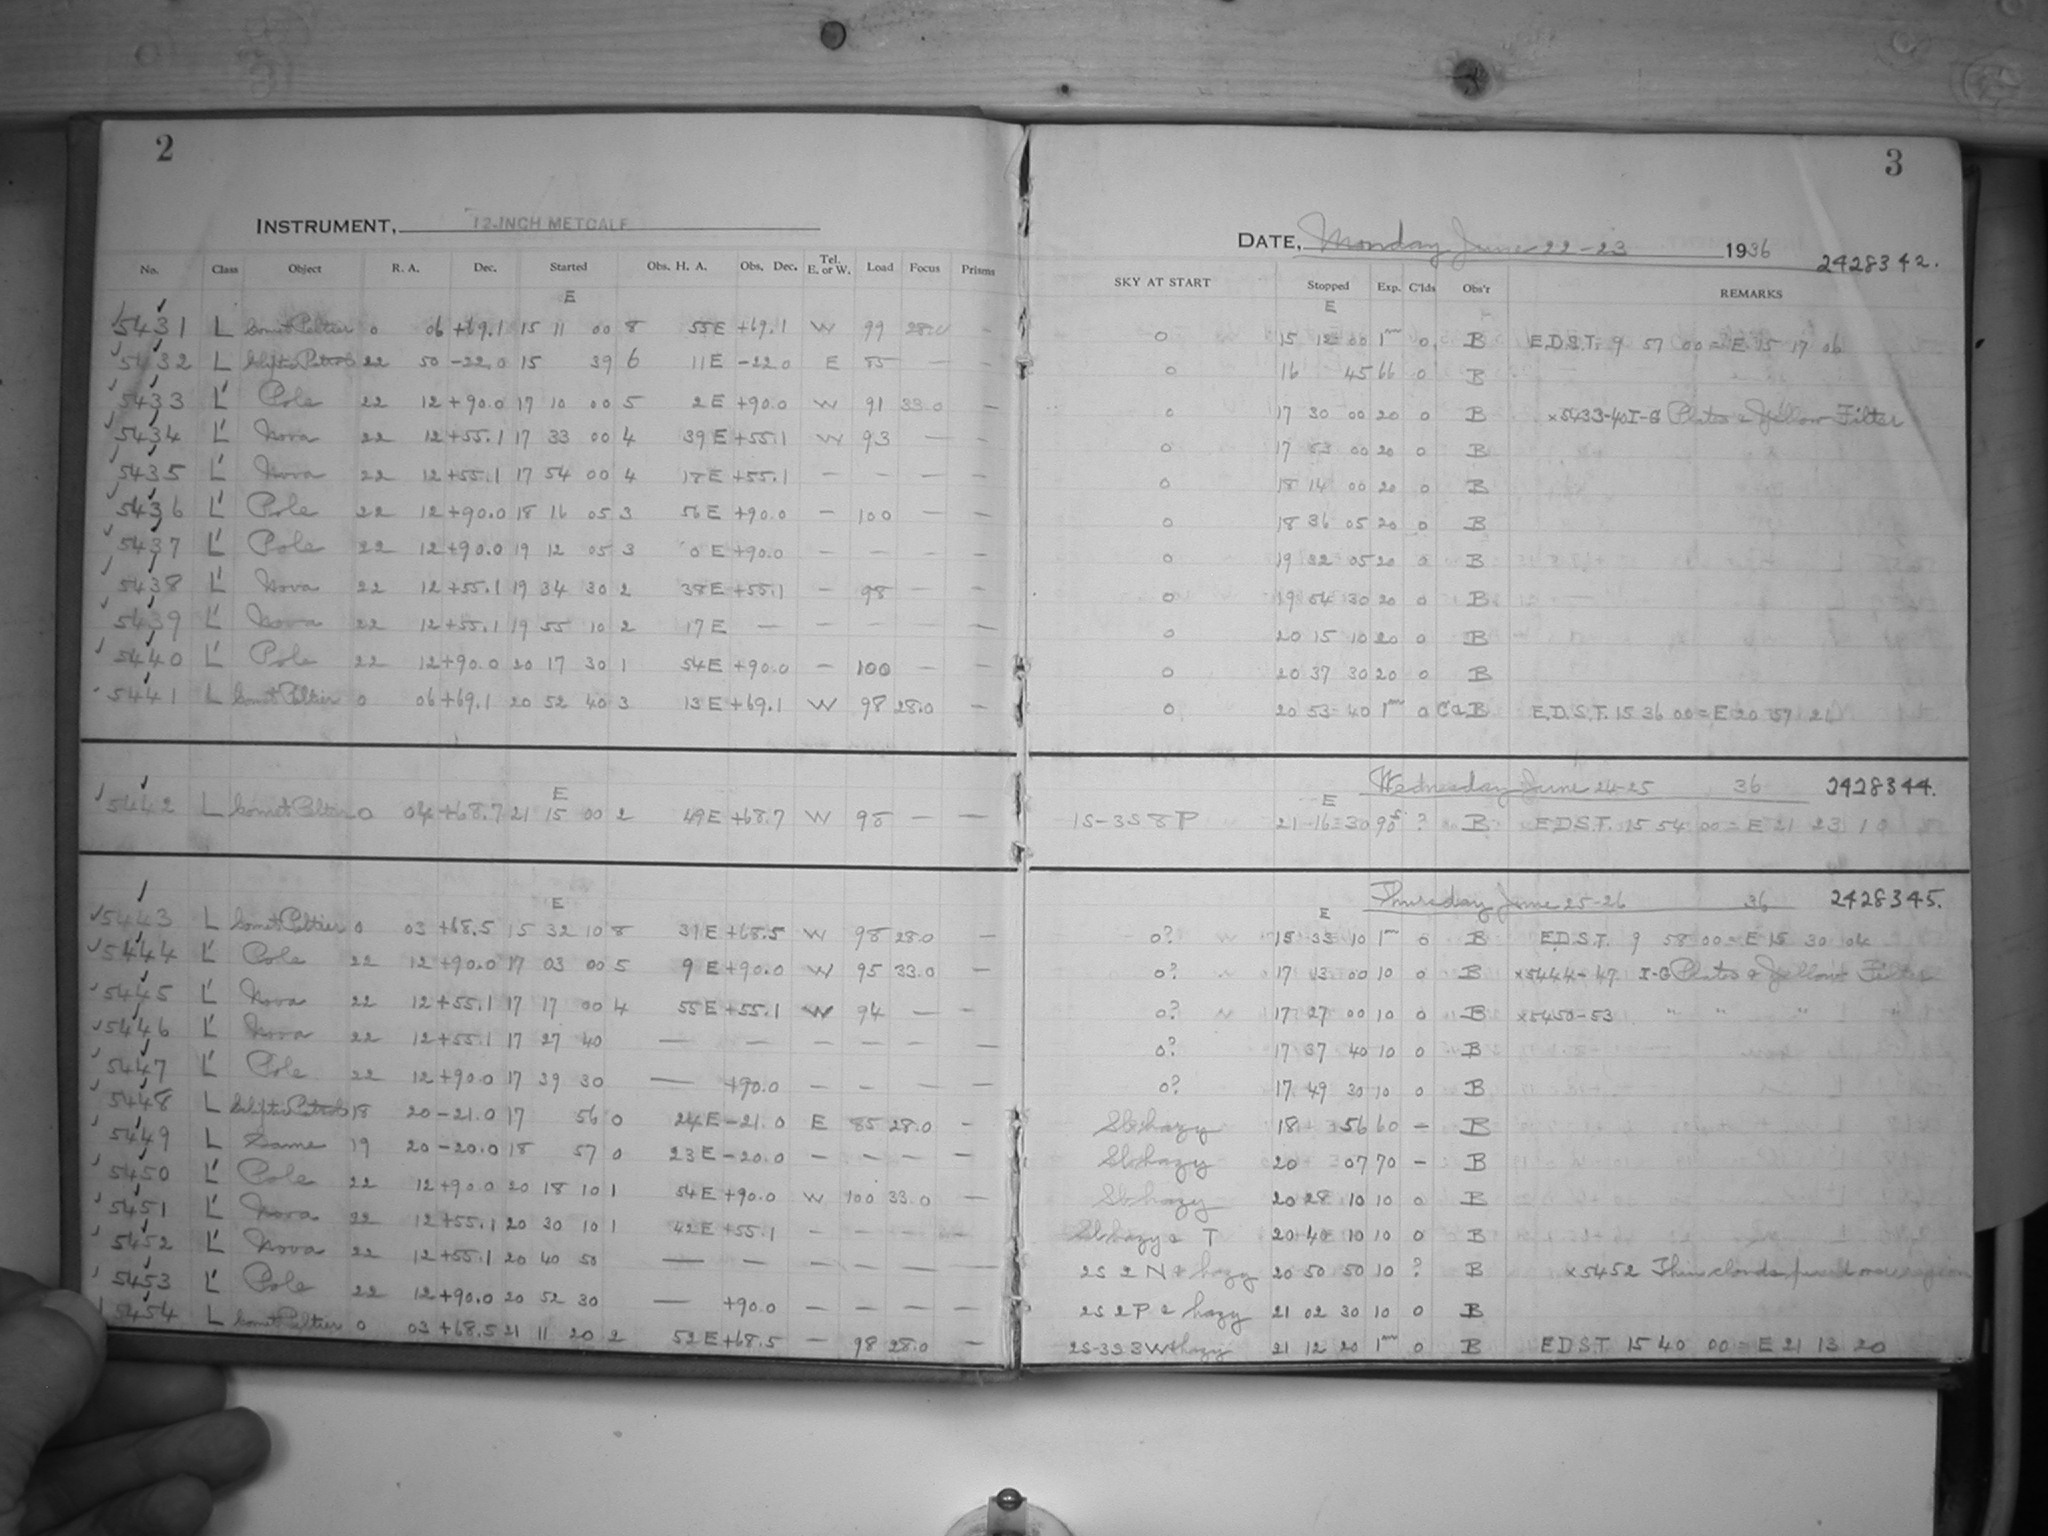 2
INSTRUMENT, 12-INCH METCALF
No. Class Object R. A. Dec. Started Obs. H. A. Obs. Dec. Tel. E. or W. Load Focus Prisms
E
5431 L Comet Peltier 0 06 +69.1 15 11 00 8 55E +69.1 W 99 28.0 —
5432 L Ecliptic Patrol 22 50 -22.0 15 39 6 11E -22.0 E 85 — —
5433 L' Pole 22 12 +90.0 17 10 00 5 2E +90.0 W 91 33.0 —
5434 L' Nova 22 12 +55.1 17 33 00 4 39E +55.1 W 93 — —
5435 L' Nova 22 12 +55.1 17 54 00 4 18E +55.1 — — — —
5436 L' Pole 22 12 +90.0 18 16 05 3 56E +90.0 — 100 — —
5437 L' Pole 22 12 +90.0 19 12 05 3 0E +90.0 — — — —
5438 L' Nova 22 12 +55.1 19 34 30 2 38E +55.1 — 98 — —
5439 L' Nova 22 12 +55.1 19 55 10 2 17E — — — — —
5440 L' Pole 22 12 +90.0 20 17 30 1 54E +90.0 — 100 — —
5441 L Comet Peltier 0 06 +69.1 20 52 40 3 13E +69.1 W 98 28.0 —
E
5442 L Comet Peltier 0 04 +68.7 21 15 00 2 49E +68.7 W 98 — —
E
5443 L Comet Peltier 0 03 +68.5 15 32 10 8 31E +68.5 W 98 28.0 —
5444 L' Pole 22 12 +90.0 17 03 00 5 9E +90.0 W 95 33.0 —
5445 L' Nova 22 12 +55.1 17 17 00 4 55E +55.1 W 94 — —
5446 L' Nova 22 12 +55.1 17 27 40 — — — — — —
5447 L' Pole 22 12 +90.0 17 39 30 — +90.0 — — — —
5448 L Ecliptic Patrol 18 20 -21.0 17 56 0 24E -21.0 E 85 28.0 —
5449 L Same 19 20 -20.0 18 57 0 23E -20.0 — — — —
5450 L' Pole 22 12 +90.0 20 18 10 1 54E +90.0 W 100 33.0 —
5451 L' Nova 22 12 +55.1 20 30 10 1 42E +55.1 — — — —
5452 L' Nova 22 12 +55.1 20 40 50 — — — — — —
5453 L' Pole 22 12 +90.0 20 52 30 — +90.0 — — — —
5454 L Comet Peltier 0 03 +68.5 21 11 20 2 52E +68.5 — 98 28.0 —
3
DATE, Monday June 22-23 1936 2428342.
SKY AT START Stopped Exp. C'lds Obs'r REMARKS
E
0 15 12 00 1m 0 B E.D.S.T. 9 57 00 = E 15 17 06
0 16 45 66 0 B
0 17 30 00 20 0 B x5433-40 I-G Plates & Yellow Filter
0 17 53 00 20 0 B
0 18 14 00 20 0 B
0 18 36 05 20 0 B
0 19 32 05 20 0 B
0 19 54 30 20 0 B
0 20 15 10 20 0 B
0 20 37 30 20 0 B
0 20 53 40 1m 0 B E.D.S.T. 15 36 00 = E 20 57
Wednesday June 24-25 36 2428344.
E
1S-3S 8P 21 16 30 90s ? B E.D.S.T. 15 54 00 = E 21 23
Thursday June 25-26 36 2428345.
E
0? 15 33 10 1m 0 B E.D.S.T. 9 58 00 = E 15 30 04
0? 17 13 00 10 0 B x5444-47 I-G Plates & Yellow Filter
0? 17 27 00 10 0 B x5450-53 " " " "
0? 17 37 40 10 0 B
0? 17 49 30 10 0 B
Sl hazy 18 56 60 — B
Sl hazy 20 07 70 — B
Sl hazy 20 28 10 10 0 B
Sl hazy & T 20 40 10 10 0 B
2S 2N & hazy 20 50 50 10 ? B x5452 Thin clouds over region
2S 2P & hazy 21 02 30 10 0 B
2S-3S 3W & hazy 21 12 20 1m 0 B E.D.S.T. 15 40 00 = E 21 13 20